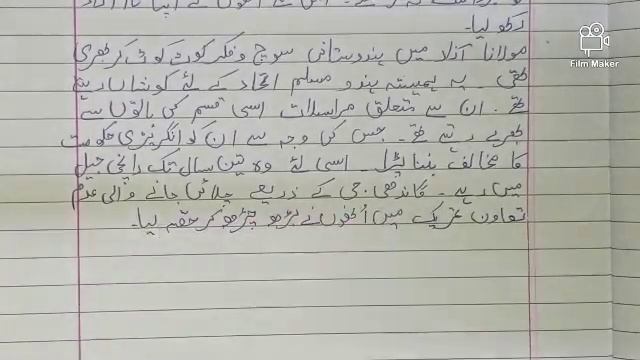 رکھ لیا۔
مولانا آزاد میں ہندوستانی سوچ و فکر کوٹ کوٹ کر بھری
تھی۔ یہ ہمیشہ ہندو مسلم اتحاد کے لئے کوشاں رہتے
تھے۔ ان سے متعلق مراسلات اسی قسم کی باتوں سے
بھرے رہتے تھے۔ جس کی وجہ سے ان کو انگریزی حکومت
کا مخالف بننا پڑا۔ اسی لئے وہ تین سال تک رانچی جیل
میں رہے۔ گاندھی جی کے ذریعے چلائی جانے والی عدم
تعاون تحریک میں اُنھوں نے بڑھ چڑھ کر حصّہ لیا۔
Film Maker